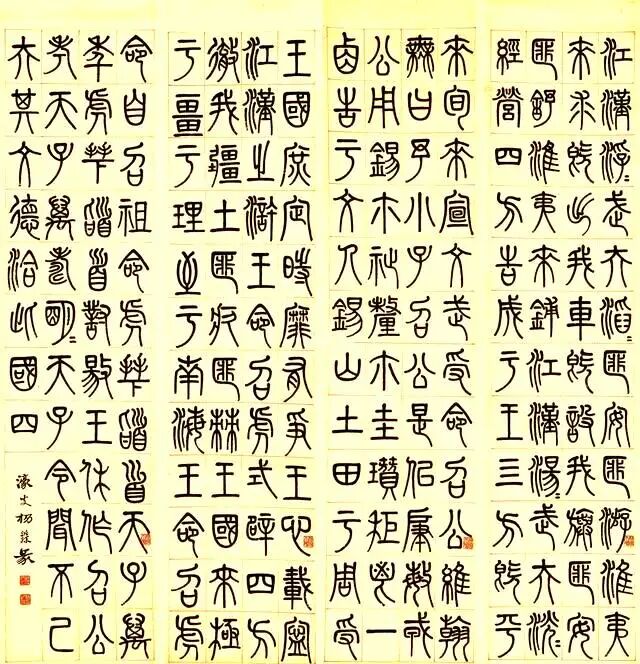 江漢浮=武夫滔=匪安匪游淮夷
來求既出我車既設我旟匪安
匪舒淮夷來鋪江漢湯=武夫洸=
經營四方告成于王亖方既平
來旬來宣文武受命召公維翰
無曰予小子召公是似肇敏戎
公用錫爾祉釐爾圭瓚秬鬯一
卣告于文人錫山土田于周受
王國庶定時靡有爭王心載寧
江漢之滸王命召虎式辟四方
徹我疆土匪疚匪棘王國來極
于疆于理至于南海王命召虎
命自召祖命虎拜稽首天子萬
年虎拜稽首對揚王休作召公
考天子萬壽明=天子令聞不已
矢其文德洽此國四
濠叟楊沂孫篆